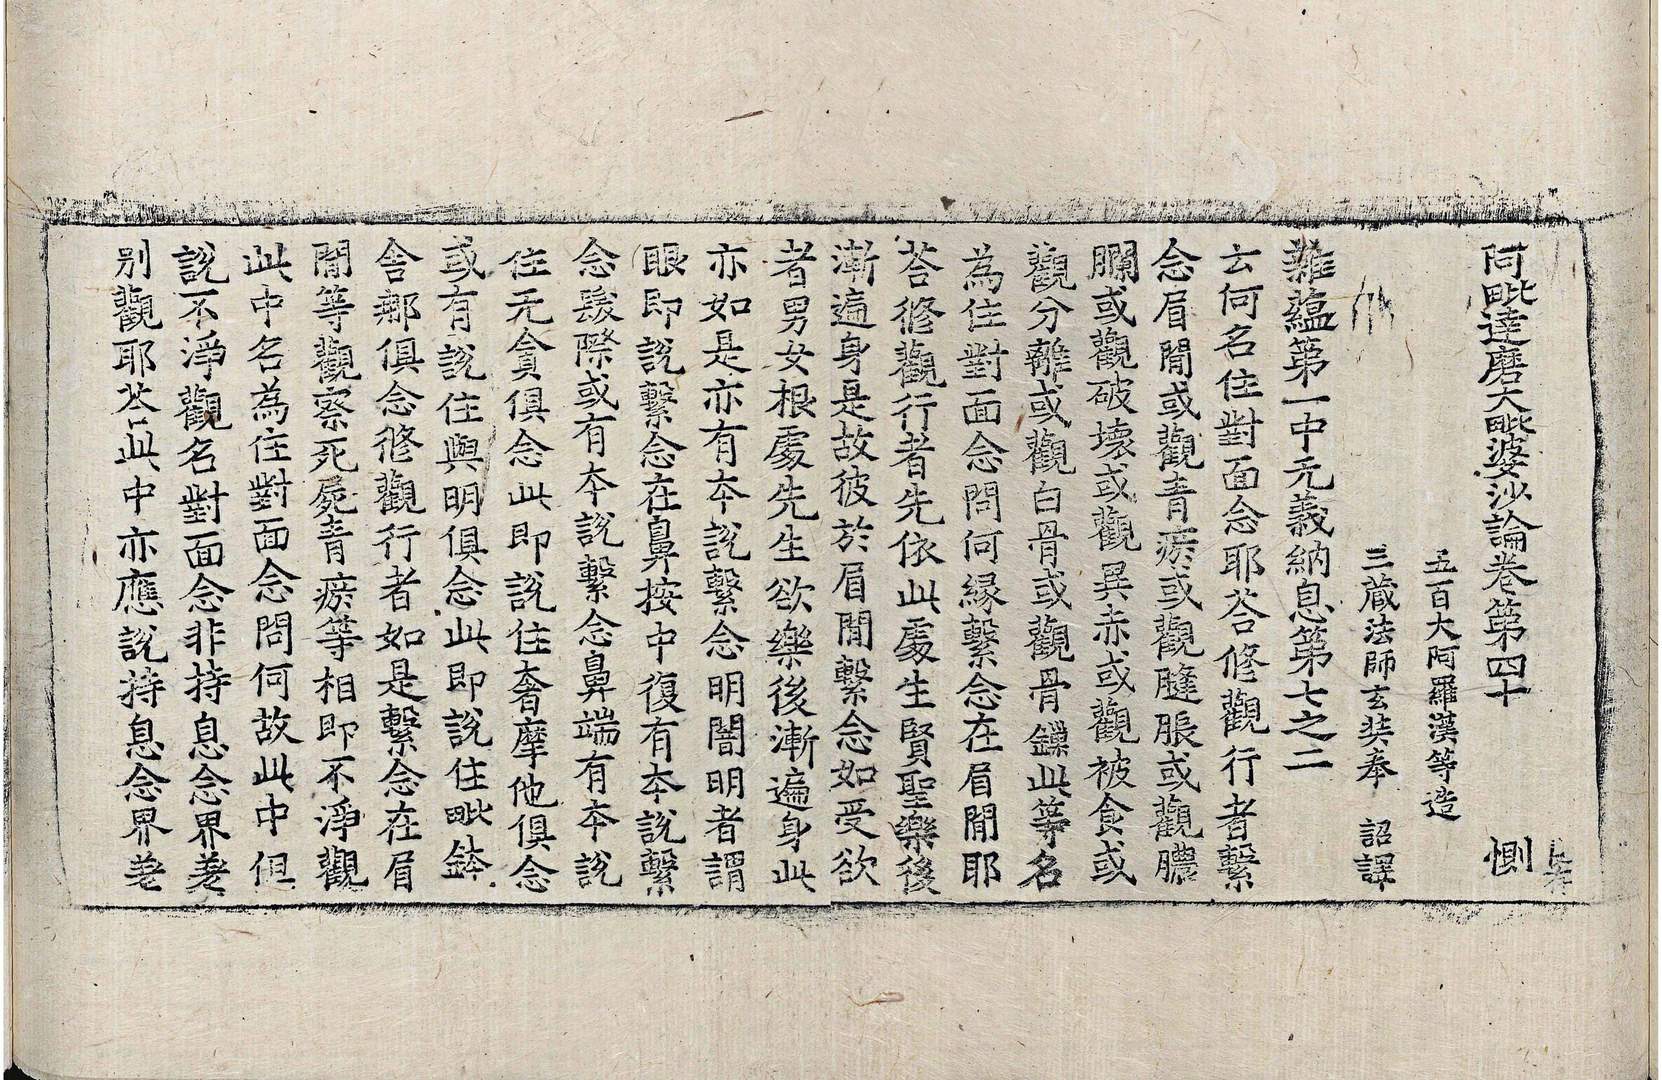 阿毗達磨大毗婆沙論卷第四十 惻
五百大阿羅漢等造
三藏法師玄奘奉 詔譯
雜蘊第一中无義納息第七之二
云何名住對面念耶荅修觀行者繫
念眉閒或觀青瘀或觀膖脹或觀膿
爛或觀破壞或觀異赤或觀被食或
觀分離或觀白骨或觀骨鏁此等名
為住對面念問何緣繫念在眉閒耶
荅修觀行者先依此處生賢聖樂後
漸遍身是故彼於眉閒繫念如受欲
者男女根處先生欲樂後漸遍身此
亦如是亦有本說繫念明闇明者謂
眼即說繫念在鼻按中復有本說繫
念髮際或有本說繫念鼻端有本說
住无貪俱念此即說住奢摩他俱念
或有說住與明俱念此即說住毗鉢
舍那俱念修觀行者如是繫念在眉
閒等觀察死屍青瘀等相即不淨觀
此中名為住對面念問何故此中但
說不淨觀名對面念非持息念界差
別觀耶荅此中亦應說持息念界差